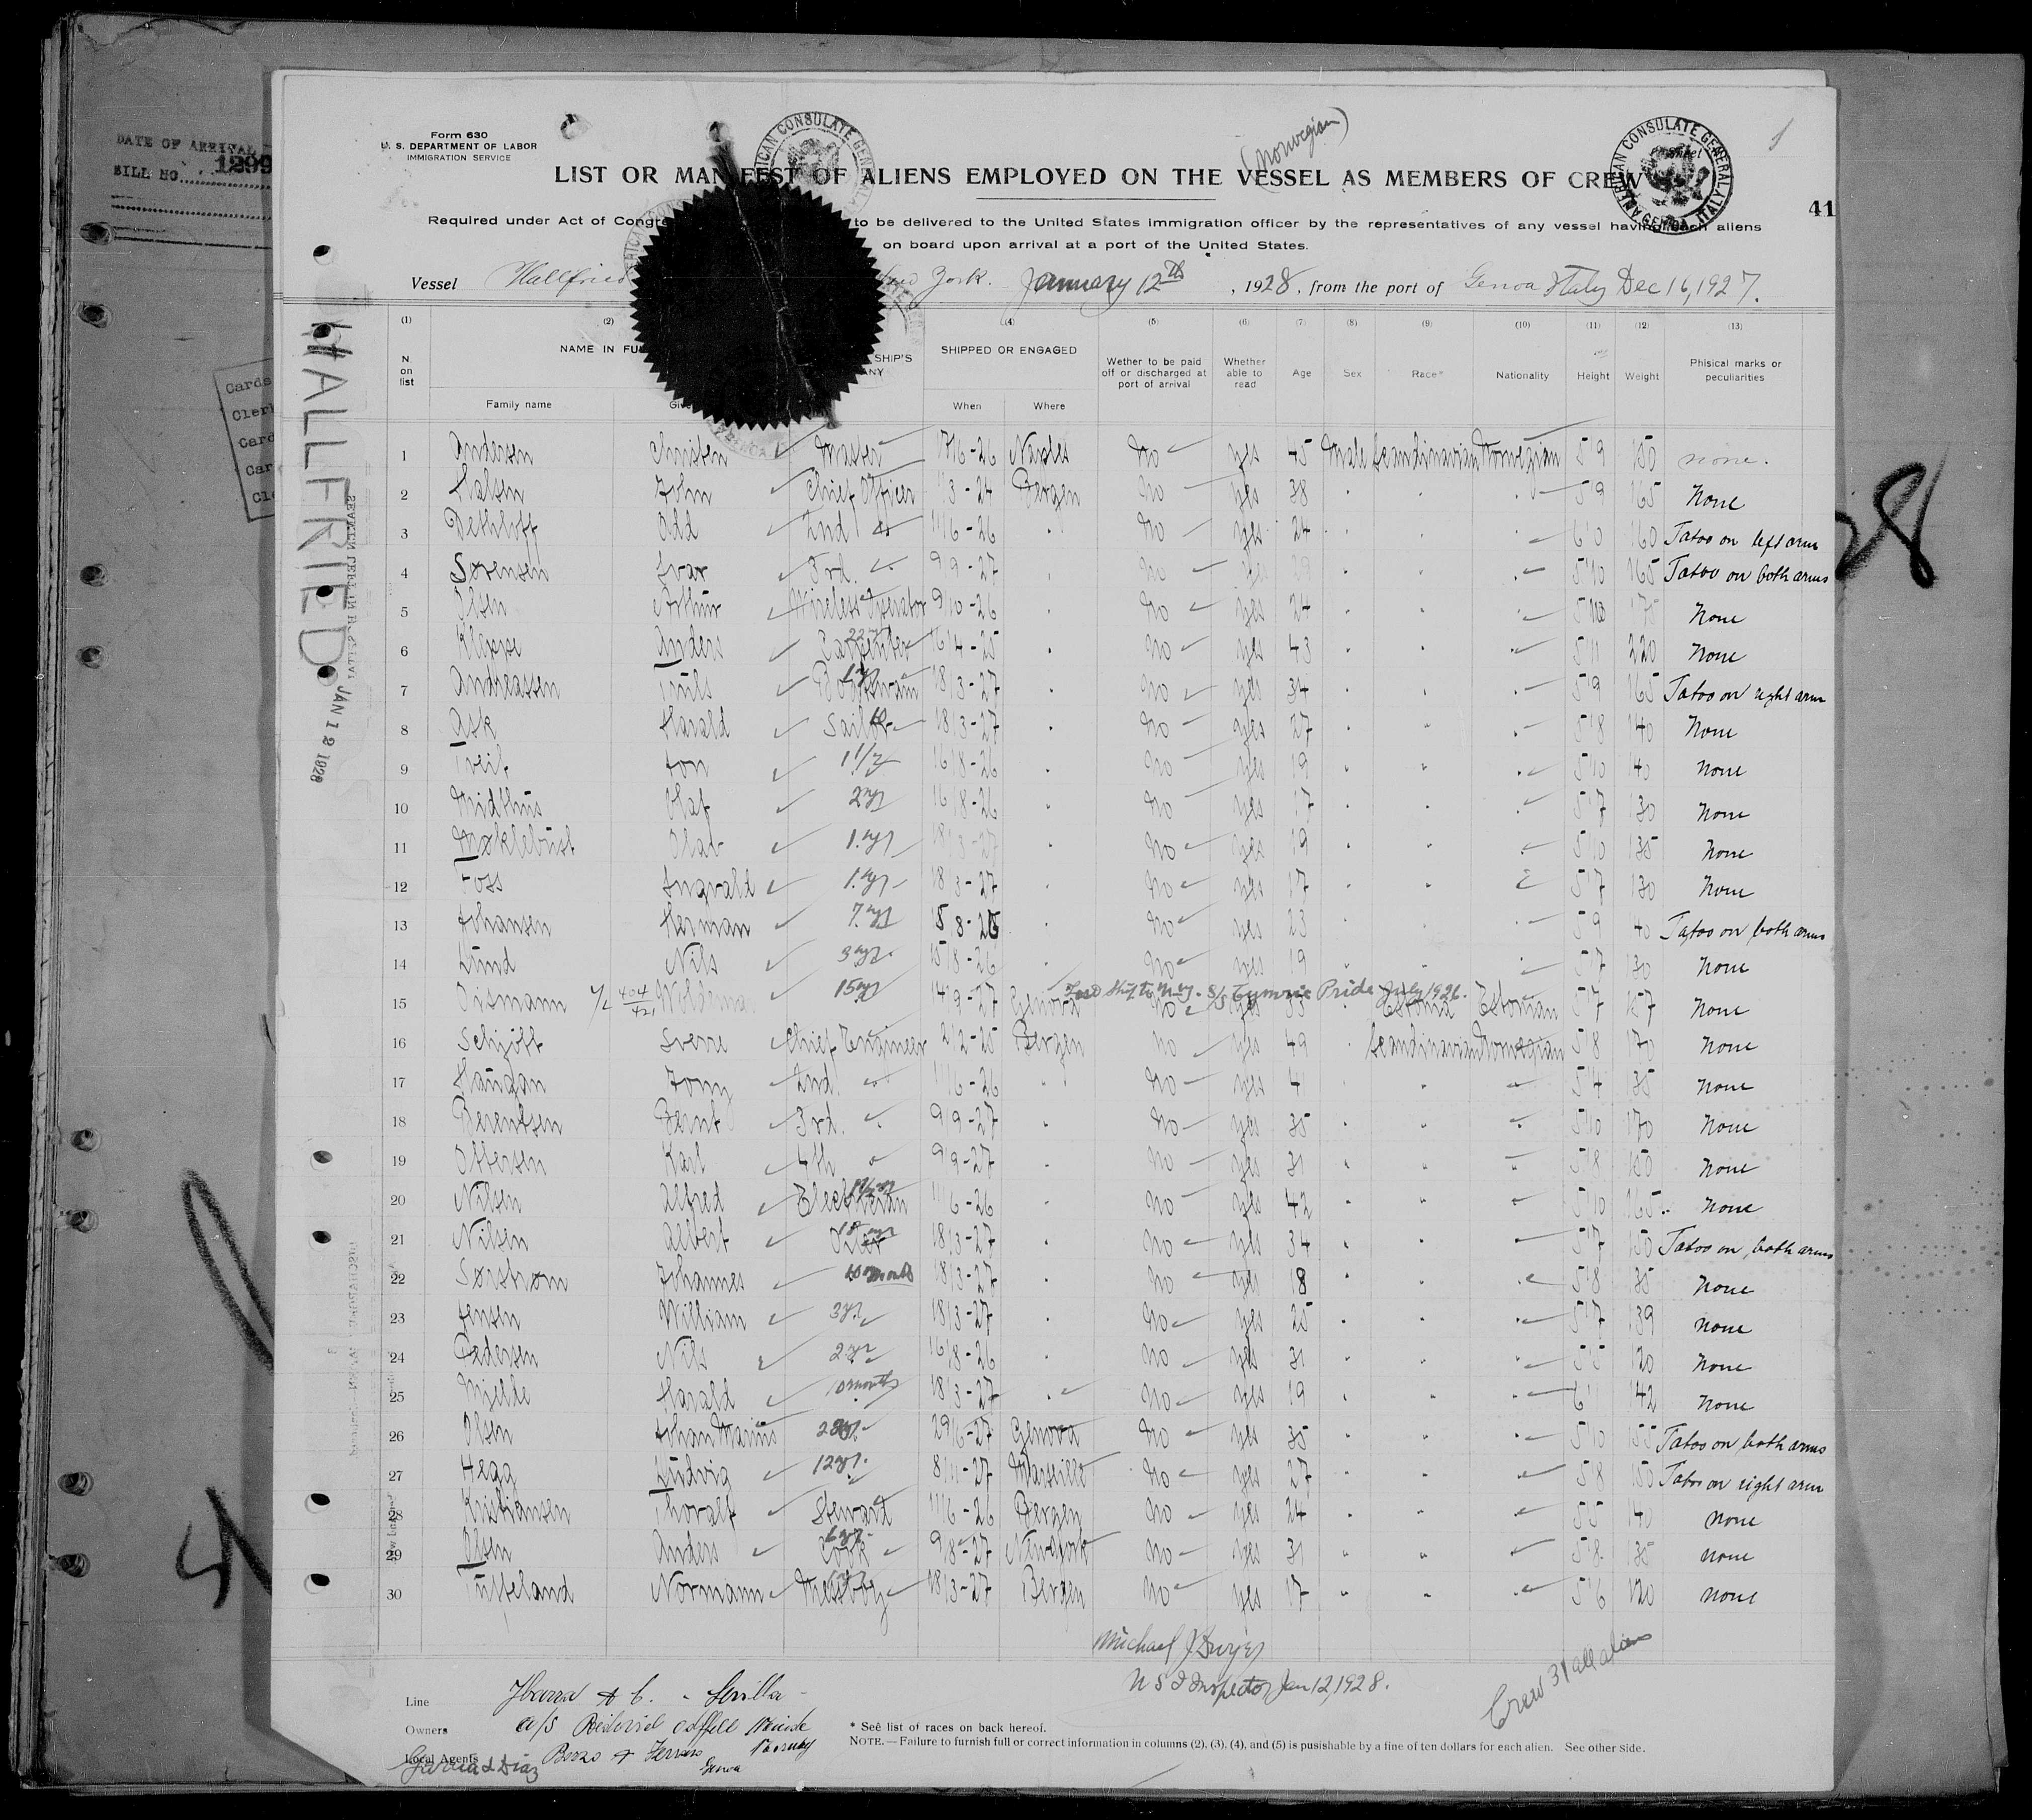 DATE OF ARRIVAL
BILL NO. 1299
Form 630
U. S. DEPARTMENT OF LABOR
IMMIGRATION SERVICE
(Norwegian)
AMERICAN CONSULATE GENERAL
AMERICAN CONSULATE GENERAL GENOA, ITALY
LIST OR MANIFEST OF ALIENS EMPLOYED ON THE VESSEL AS MEMBERS OF CREW
41
Required under Act of Congre to be delivered to the United States immigration officer by the representatives of any vessel having such aliens
on board upon arrival at a port of the United States.
Vessel Hallfried New York. January 12th, 1928, from the port of Genoa Italy Dec 16, 1927.
(1) (2) (4) (5) (6) (7) (8) (9) (10) (11) (12) (13)
N on list NAME IN FU SHIP'S NY SHIPPED OR ENGAGED Wether to be paid off or discharged at port of arrival Whether able to read Age Sex Race* Nationality Height Weight Phisical marks or peculiarities
Family name Gi When Where
HALLFRIED
JAN 12 1928
1 Andersen Christen Master 17/6-26 Naples No yes 45 Male Scandinavian Norwegian 5 9 150 none.
2 Halsen John Chief Officer 1/3-24 Bergen No yes 38 5 9 165 None
3 Dethloff Odd 2nd 11/6-26 No yes 24 6 0 160 Tatoo on left arm
4 Sørensen Ivar 3rd. 9/9-27 No yes 29 5 10 165 Tatoo on both arms
5 Olsen Arthur Wireless Operator 9/10-26 No yes 24 None
6 Kleppe Anders Carpenter 16/4-25 No yes 43 5 11 220 None
7 Andreassen Truls Boatswain 18/3-27 No yes 34 5 9 165 Tatoo on right arm
8 Ask Harald Sailor 18/3-27 No yes 27 5 8 140 None
9 Tveit Jon 1 1/2 16/8-26 No yes 19 5 10 140 None
10 Midthus Olaf 2 yr 16/8-26 No yes 17 5 7 130 None
11 Møklebust Olav 1 yr 18/3-27 No yes 19 5 10 135 None
12 Foss Ingvald 1 yr 18/3-27 No yes 17 5 7 130 None
13 Johansen Herman 7 yr 15/8-26 No yes 23 5 9 140 Tatoo on both arms
14 Lund Nils 3 yr 15/8-26 No yes 19 5 7 130 None
15 404/421 15 yr 14/9-27 Genova No yes 33 Estonia Estonian 5 7 157 None
Pride July 1926.
16 Schjött Sverre Chief Engineer 2/2-25 Bergen No yes 49 Scandinavian Norwegian 5 8 170 None
17 Haugan Tony 2nd. 11/6-26 No yes 41 5 4 135 None
18 Berentsen Bernt 3rd. 9/9-27 No yes 35 5 10 170 None
19 Ottersen Karl 4th 9/9-27 No yes 31 5 8 150 None
20 Nilsen Alfred Electrician 11/6-26 No yes 42 5 10 165 None
21 Nilsen Albert Oiler 18/3-27 No yes 34 5 7 150 Tatoo on both arms
22 Sørstrøm Johannes 10 months 18/3-27 No yes 18 5 8 135 None
23 Jensen William 3 yr 18/3-27 No yes 25 5 7 139 None
24 Pedersen Nils 2 yr 16/8-26 No yes 31 5 5 120 None
25 Mjelde Harald 10 months 18/3-27 No yes 19 6 1 142 None
26 Olsen Johan Marius 29/6-27 Genova No yes 35 5 10 155 Tatoo on both arms
27 Hegg Ludvig 12 yr. 8/11-27 Marseille No yes 27 5 8 150 Tatoo on right arm
28 Kristiansen Thoralf Steward 11/6-26 Bergen No yes 24 5 5 140 none
29 Olsen Anders Cook 9/8-27 New York No yes 31 5 8 135 none
30 Tusseland Normann Messboy 18/3-27 Bergen No yes 17 5 6 120 none
Michael J Dwyer
U S I Inspector Jan 12, 1928.
Crew 31 all aliens
Line Ybarra & C. - Sevilla
Owners
Local Agents
Garcia & Diaz Genoa
* See list of races on back hereof.
NOTE.—Failure to furnish full or correct information in columns (2), (3), (4), and (5) is pusishable by a fine of ten dollars for each alien. See other side.
28